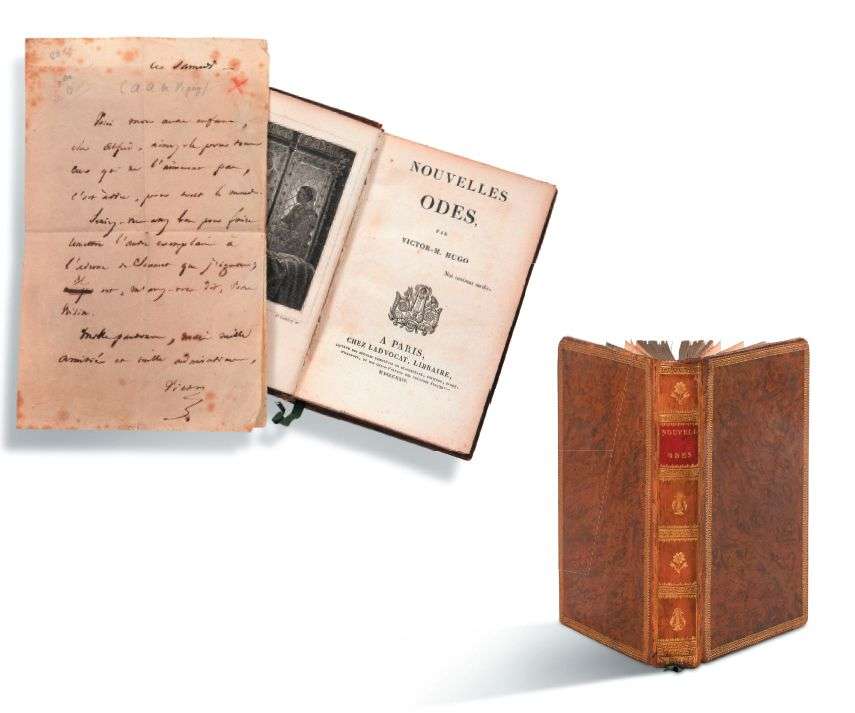 ce Samedi –
(à A de Vigny)
Voici mon autre enfant,
cher Alfred, aimez-le pour tous
ceux qui ne l'aimeront pas,
c'est à dire, pour tout le monde.
Seriez-vous assez bon pour faire
remettre l'autre exemplaire à
l'adresse de que j'ignore;
est, m'avez-vous dit, votre
voisin.
Mille pardons, mais mille
amitiés et mille admirations,
Victor
NOUVELLES
ODES,
PAR
VICTOR-M. HUGO
Nos canimus surdis.
A PARIS,
CHEZ LADVOCAT, LIBRAIRE,
M DCCC XXIV.
NOUVELL
ODES